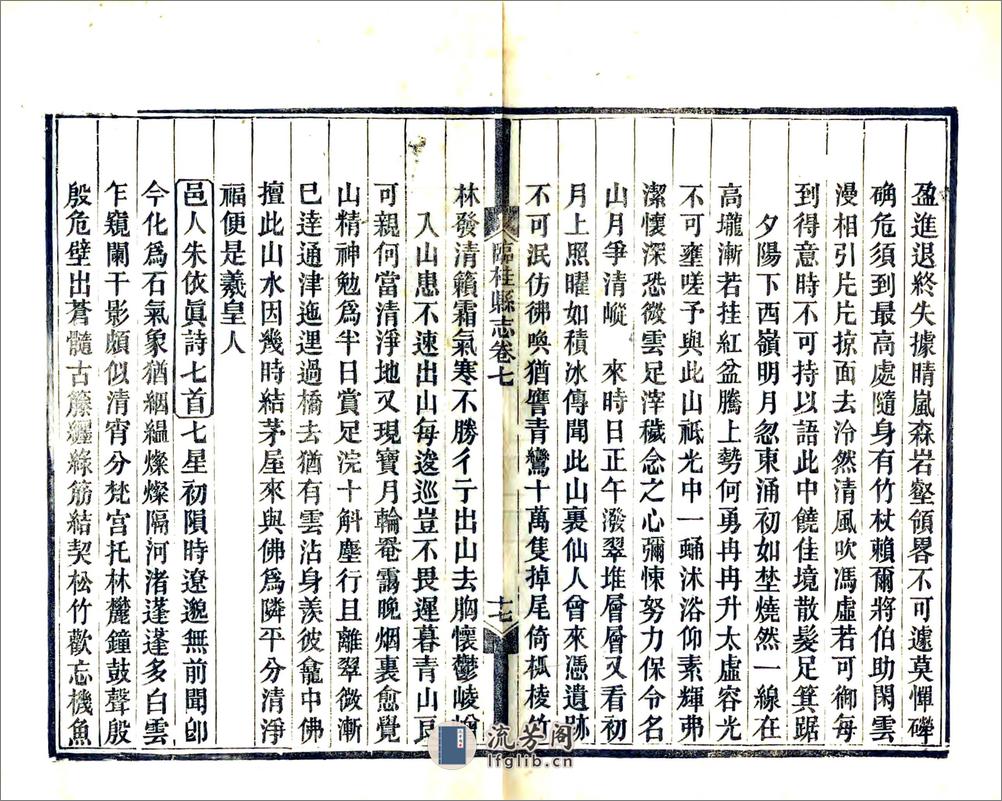 盈進退終失據晴嵐森岩壑領畧不可遽莫憚犖
确危須到最高處隨身有竹杖賴爾將伯助閑雲
漫相引片片掠面去泠然清風吹馮虛若可御每
到得意時不可持以語此中饒佳境散髮足箕踞
夕陽下西嶺明月忽東涌初如埜燒然一線在
高壠漸若挂紅盆騰上勢何勇冉冉升太虛容光
不可壅嗟予與此山祇光中一踊沐浴仰素輝弗
潔懷深恐微雲足滓穢念之心彌悚努力保令名
山月爭清嵷 來時日正午潑翠堆層層又看初
月上照曜如積冰傳聞此山裏仙人曾來憑遺跡
不可泯仿彿喚猶譍青鸞十萬隻掉尾倚柧棱竹
臨桂縣志卷七
十七
林發清籟霜氣寒不勝彳亍出山去胸懷鬱崚嶒
入山患不速出山每逡巡豈不畏遲暮青山良
可親何當清淨地又現寶月輪罨靄晚烟裏愈覺
山精神勉爲半日賞足浣十斛塵行且離翠微漸
巳達通津迤逦過橋去猶有雲沾身羨彼龕中佛
擅此山水因幾時結茅屋來與佛爲隣平分清淨
福便是羲皇人
邑人朱依眞詩七首七星初隕時遼邈無前聞卽
今化爲石氣象猶絪縕燦燦隔河渚蓬蓬多白雲
乍窺闌干影頗似清宵分梵宫托林麓鐘鼓聲殷
殷危壁出蒼髓古籐纒綠筋結契松竹歡忘機魚
流芳阁
lfglib.cn